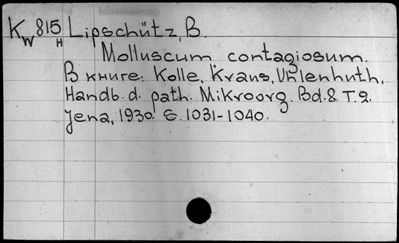 Kw 815 H Lipschütz, B.
Molluscum contagiosum.
В книге: Kolle, Kraus, Uhlenhuth,
Handb. d. path. Mikroorg. Bd. 8. T. 2.
Jena, 1930. S. 1031-1040.